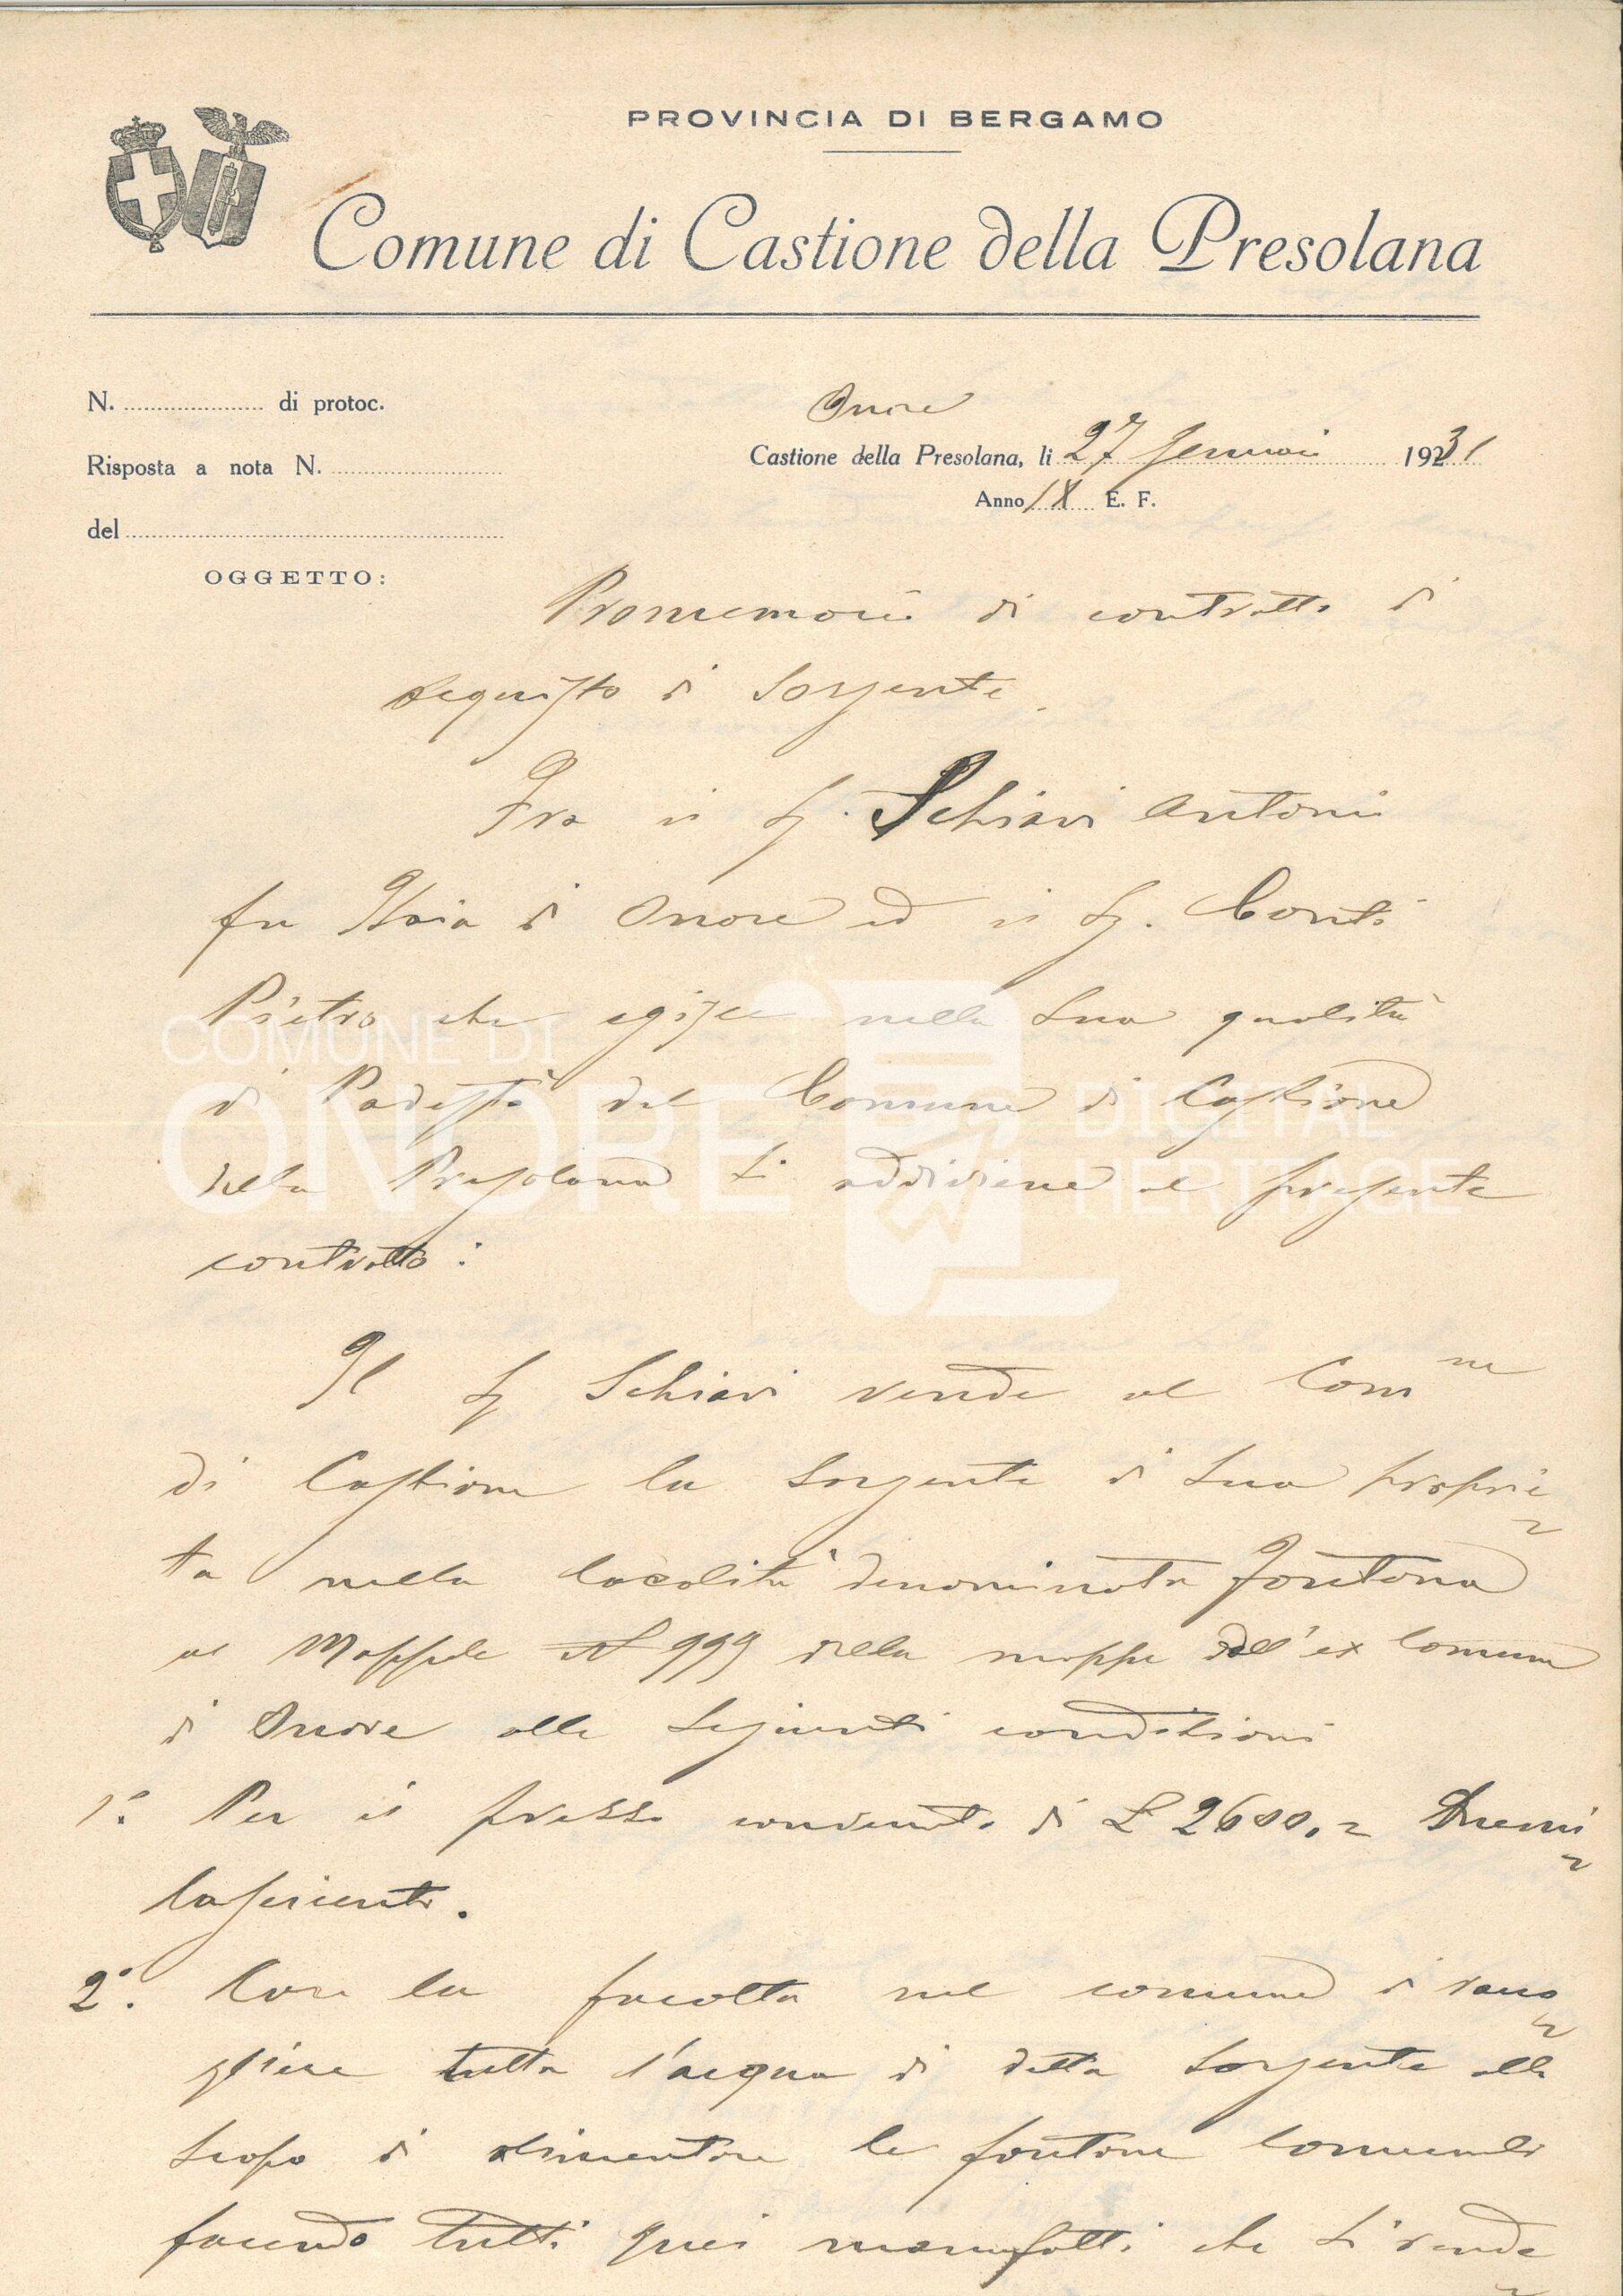 PROVINCIA DI BERGAMO
Comune di Castione della Presolana
N. di protoc.
Risposta a nota N.
del
OGGETTO:
Onore
Castione della Presolana, li 27 Gennaio 1931
Anno IX E. F.
Promemoria di contratto di
acquisto di sorgente.
Fra il Sg. Schiavi Antonio
fu Isaia di Onore ed il Sg. Conti
Pietro che agisce nella sua qualità
di Podestà del Comune di Castione
della Presolana si addiviene al presente
contratto:
Il Sg Schiavi vende al Com ne
di Castione la sorgente di sua proprie
ta nella località denominata Fontana
al Mappale N 999 della mappa dell'ex Comune
di Onore alle seguenti condizioni
1° Per il prezzo convenuto di L 2600.= Duemi
laseicento.
2°. Con la facolta nel comune di racco
gliere tutta l'acqua di detta sorgente allo
scopo di alimentare le fontane comunali
facendo tutti quei manufatti che si rende
COMUNE DI
ONORE
DIGITAL
HERITAGE